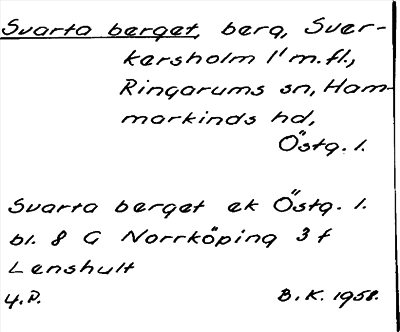 Svarta berget, berg, Sver-
kersholm 1¹ m.fl.,
Ringarums sn, Ham-
markinds hd,
Östg. l.
Svarta berget ek Östg. l.
bl. 8 G Norrköping 3 f
Lenshult
Y.P. B.K. 1958.